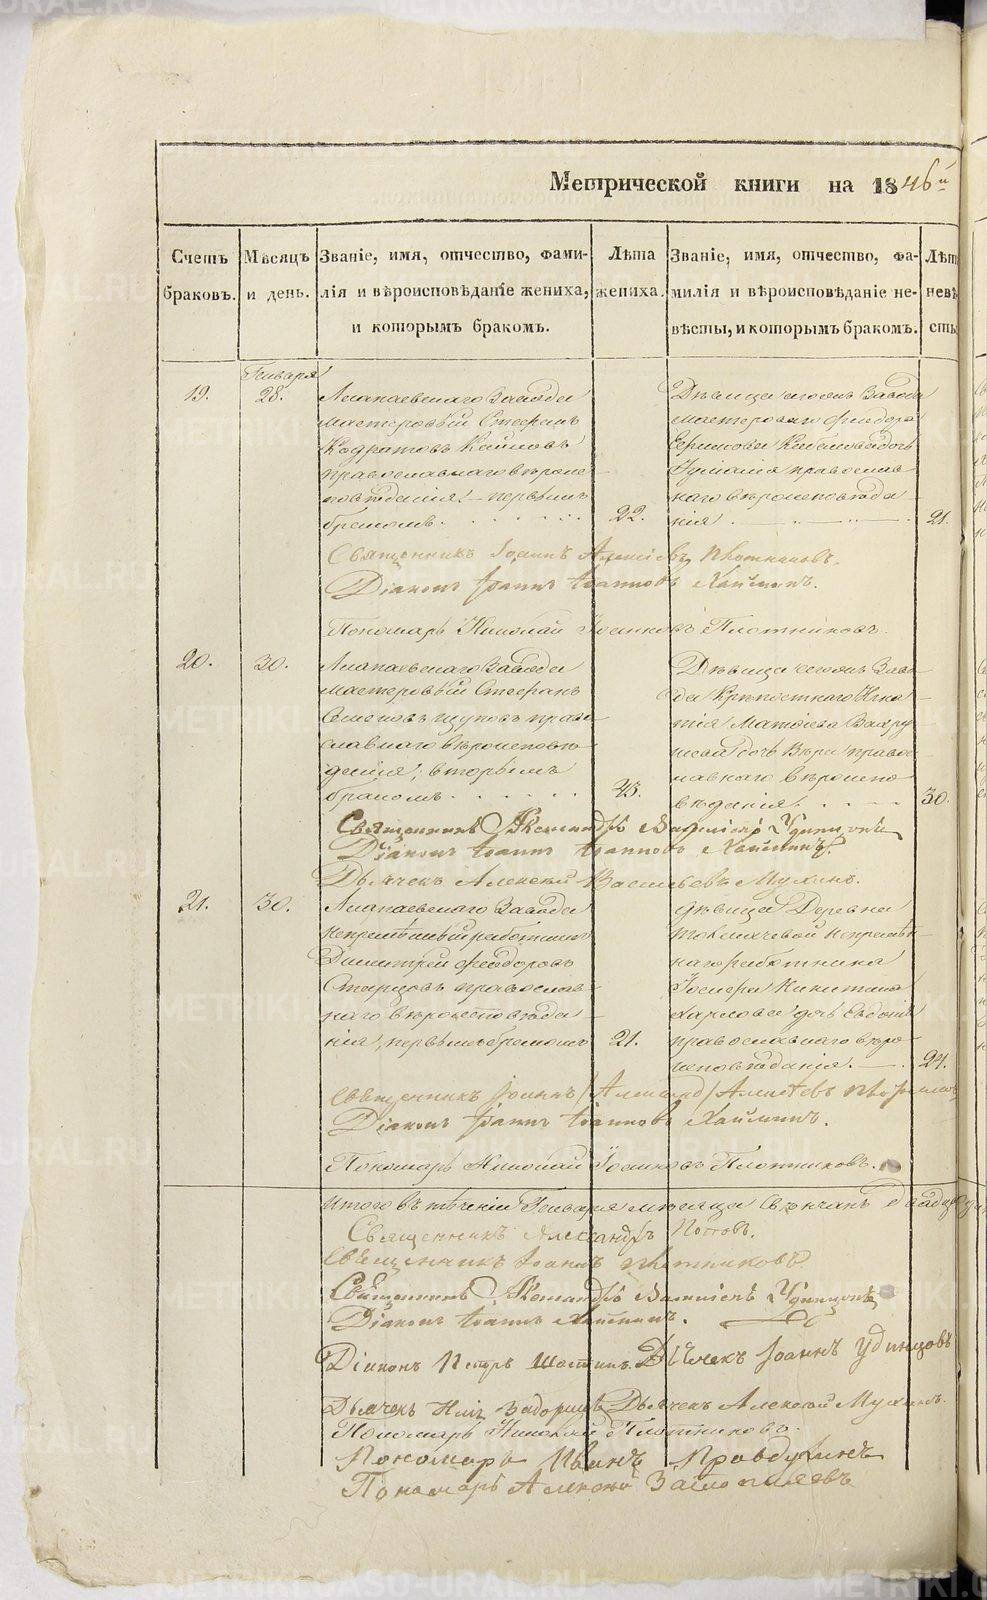 Метрической книги на 1846й
Счетъ браковъ.
Мѣсяцъ и день.
Званіе, имя, отчество, фами-
лія и вѣроисповѣданіе жениха,
и которымъ бракомъ.
Лѣта
жениха.
Званіе, имя, отчество, фа-
милія и вѣроисповѣданіе не-
вѣсты, и которымъ бракомъ.
Лѣт
невѣ
сты
Генваря
19.
28.
Алапаевскаго Завода
мастеровый Стефанъ
православнаго вѣроис-
повѣданія, первымъ
бракомъ.
22.
Дѣвица Завода
мастероваго Феодора
дочь
православ-
наго вѣроисповѣда-
нія
21.
Священникъ Іоаннъ Алексіевъ Плотниковъ.
Діаконъ Іоаннъ Іоанновъ Хайминъ.
Пономарь Николай Іоанновъ Плотниковъ.
20.
30.
Алапаевскаго Завода
мастеровый Стефанъ
Семеновъ Щуповъ право-
славнаго вѣроисповѣ-
данія, вторымъ
бракомъ
Дѣвица Заво-
да Крѣпостнаго Игна-
тія Матѳіева Вахру-
шева дочь Вѣра право-
славнаго вѣроиспо-
вѣданія.
30.
Священникъ Александръ Васильевъ Удинцовъ
Діаконъ Іоаннъ Іоанновъ Хайминъ.
Дьячекъ Алексѣй Васильевъ Мухинъ.
21.
30.
Алапаевскаго Завода
непремѣнный работникъ
Димитрій Феодоровъ
Старцовъ православ-
наго вѣроисповѣда-
нія, первымъ бракомъ
21.
дѣвица Деревни
Толмачевой непремѣн-
наго работника
Никитина
Харлова дочь Евдокія
православнаго вѣро-
исповѣданія.
24.
Священникъ Іоаннъ
Діаконъ Іоаннъ Іоанновъ Хайминъ.
Пономарь Николай Іоанновъ Плотниковъ.
Итого въ теченіи Генваря мѣсяца вѣнчано
Священникъ Александръ Поповъ.
Священникъ Іоаннъ Плотниковъ
Священникъ Александръ Васильевъ Удинцовъ
Діаконъ Іоаннъ Хайминъ.
Діаконъ Петръ Дьячекъ Іоаннъ Удинцовъ
Дьячекъ Дьячекъ Алексѣй Мухинъ.
Пономарь Николай Плотниковъ.
Пономарь Иванъ Правдухинъ
Пономарь Алексѣй